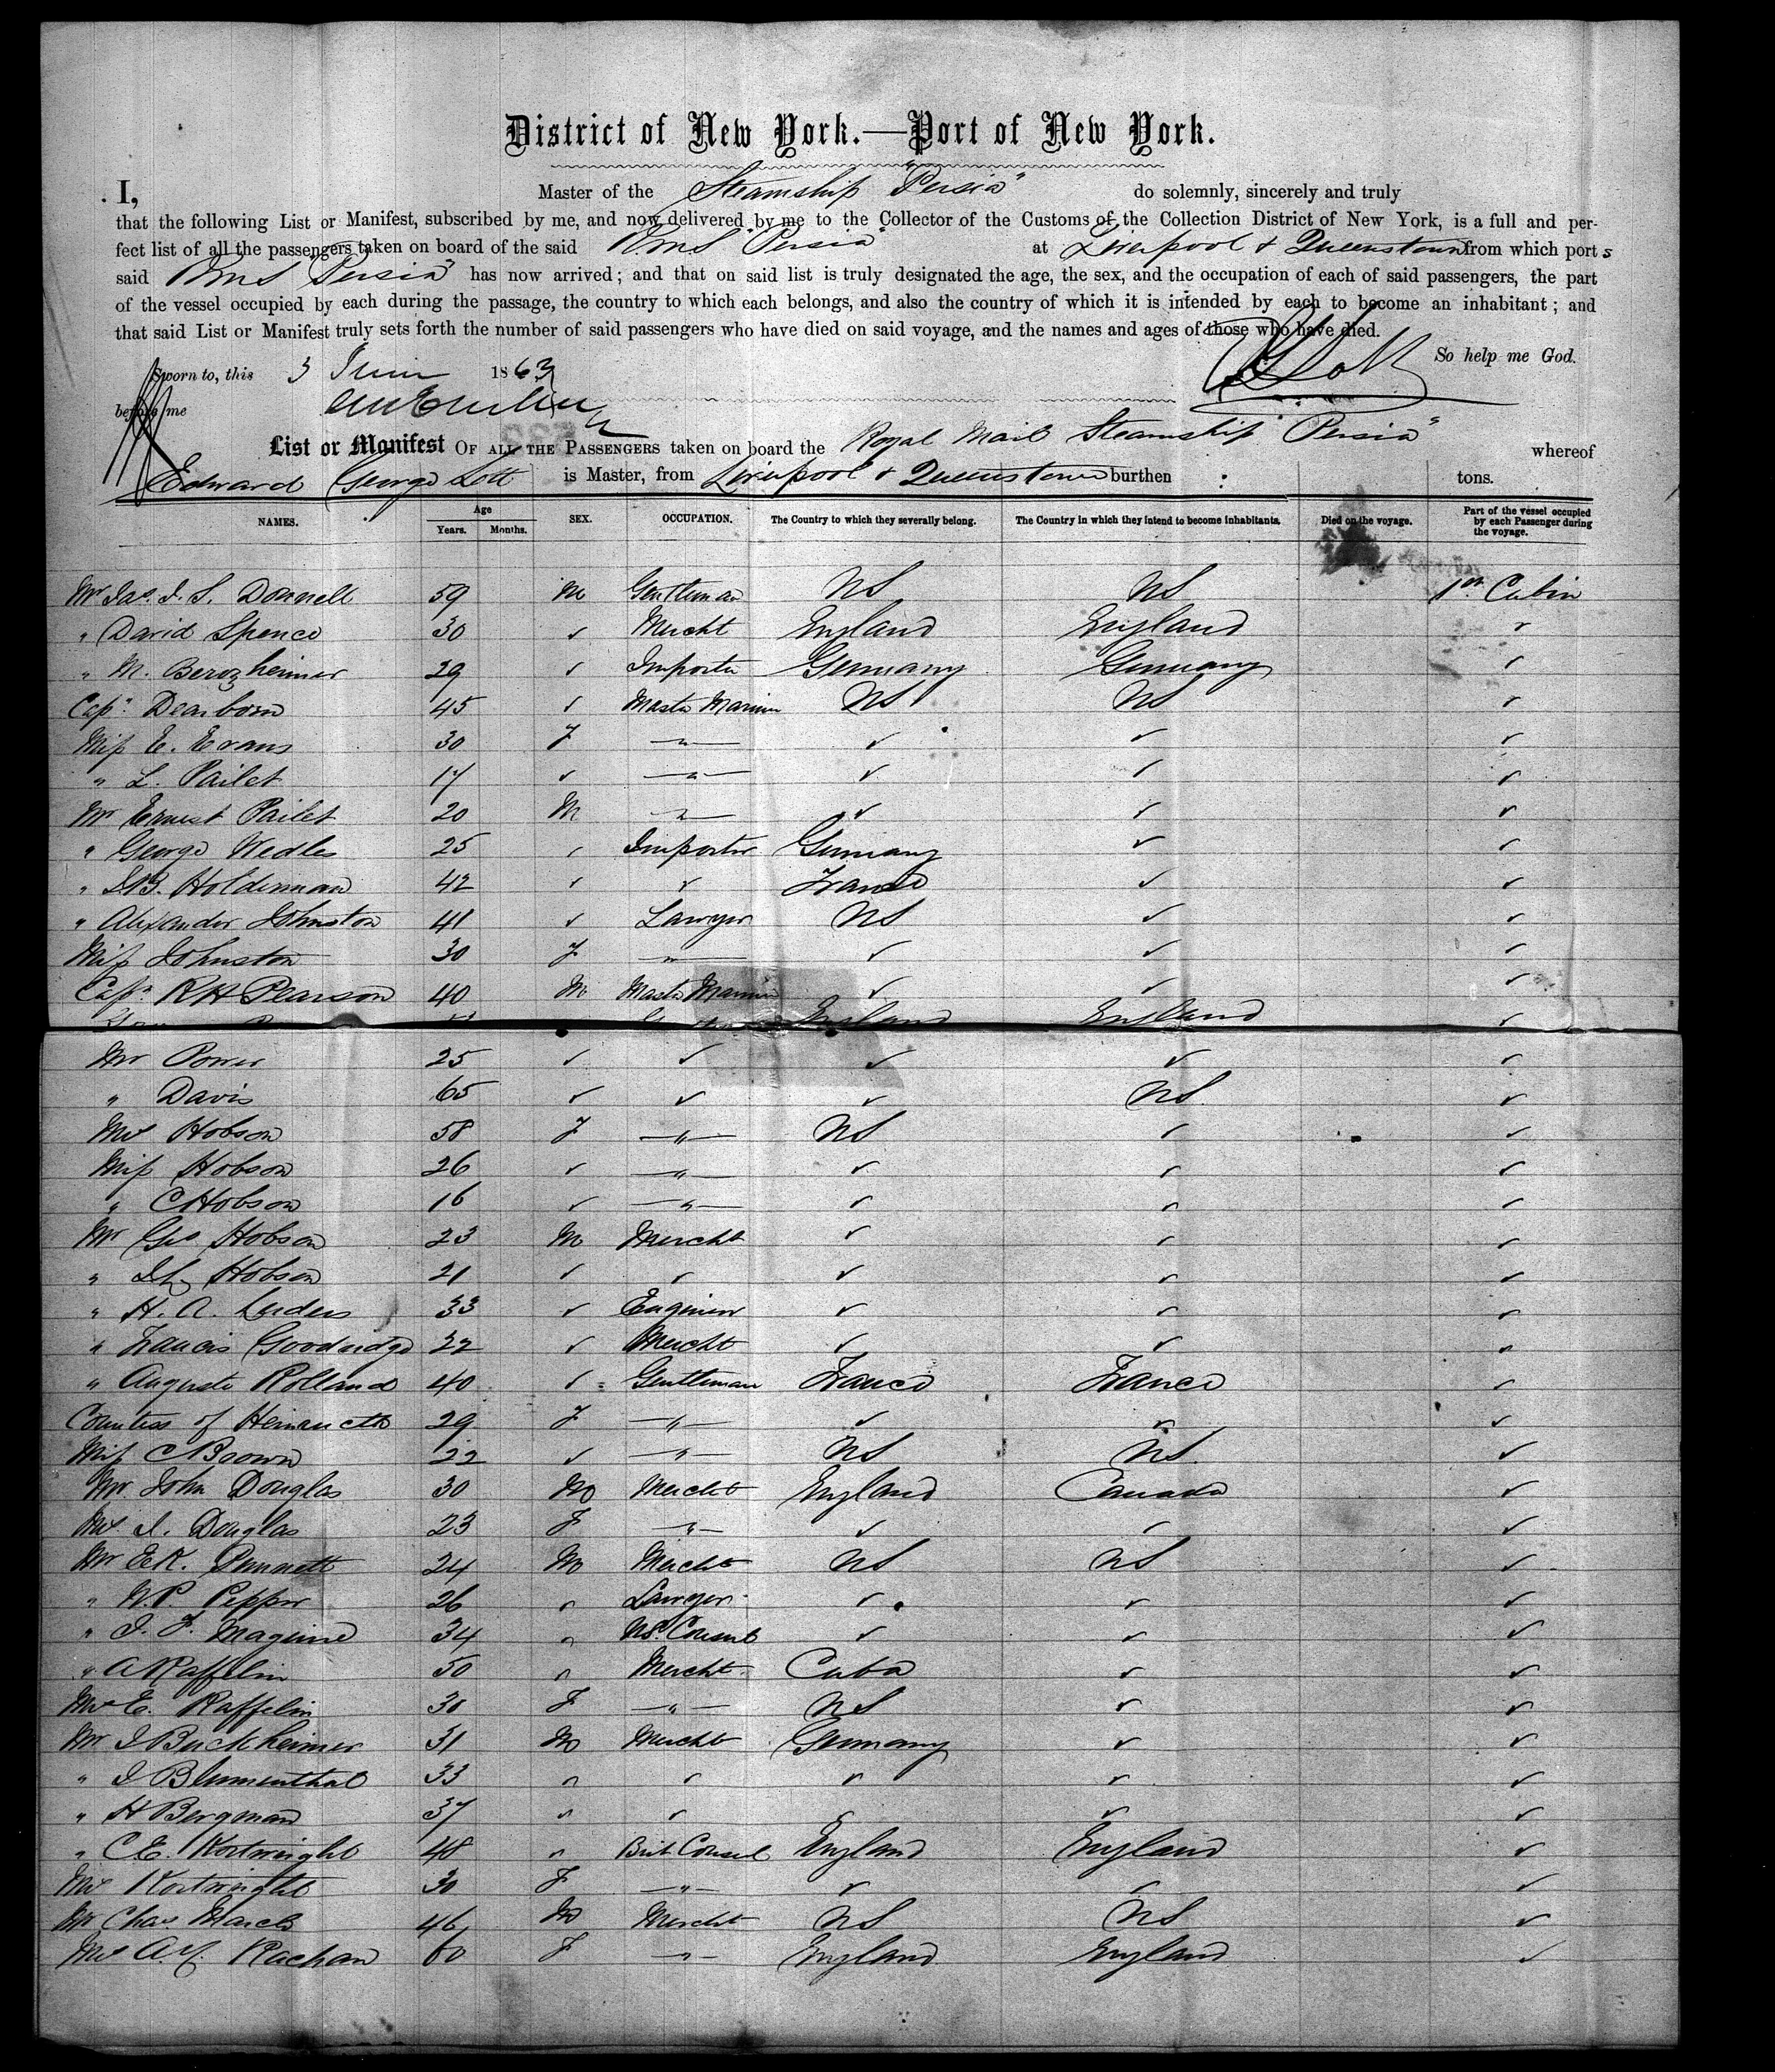 District of New York.—Port of New York.
I, Master of the Steamship "Persia" do solemnly, sincerely and truly
that the following List or Manifest, subscribed by me, and now delivered by me to the Collector of the Customs of the Collection District of New York, is a full and per-
fect list of all the passengers taken on board of the said RMS "Persia" at Liverpool & Queenstown from which ports
said RMS "Persia" has now arrived; and that on said list is truly designated the age, the sex, and the occupation of each of said passengers, the part
of the vessel occupied by each during the passage, the country to which each belongs, and also the country of which it is intended by each to become an inhabitant; and
that said List or Manifest truly sets forth the number of said passengers who have died on said voyage, and the names and ages of those who have died.
So help me God.
Sworn to, this 3 June 1863
before me
List or Manifest OF ALL THE PASSENGERS taken on board the Royal Mail Steamship "Persia" whereof
Edward George Lott is Master, from Liverpool & Queenstown burthen tons.
NAMES. Age Years. Months. SEX. OCCUPATION. The Country to which they severally belong. The Country in which they intend to become inhabitants. Died on the voyage. Part of the vessel occupied by each Passenger during the voyage.
Mr Jas. I. S. Donnell 59 M Gentleman US US 1st Cabin
" David Spence 30 ✓ Mercht England England ✓
" M. Berozheimer 29 ✓ Importer Germany Germany ✓
Capn Dearborn 45 ✓ Master Mariner US US ✓
Miss E. Evans 30 F —"— ✓ ✓ ✓
" L. Pailet 17 ✓ —"— ✓ ✓ ✓
Mr Ernest Pailet 20 M —"— ✓ ✓ ✓
" George Wedles 25 ✓ Importer Germany ✓ ✓
" Holderman 42 ✓ ✓ France ✓ ✓
" Alexander Johnston 41 ✓ Lawyer US ✓ ✓
Miss Johnston 30 F —"— ✓ ✓ ✓
Capn R H Pearson 40 M Master Mariner ✓ ✓ ✓
England England ✓
Mr Power 25 ✓ ✓ ✓ ✓ ✓
" Davis 65 ✓ ✓ ✓ US ✓
Mrs Hobson 58 F —"— US ✓ ✓
Miss Hobson 26 ✓ —"— ✓ ✓ ✓
" C Hobson 16 ✓ —"— ✓ ✓ ✓
Mr Geo Hobson 23 M Mercht ✓ ✓ ✓
" Hobson 21 ✓ ✓ ✓ ✓ ✓
" H. A. Luders 33 ✓ Engineer ✓ ✓ ✓
" Francis Goodridge 22 ✓ Mercht ✓ ✓ ✓
" Auguste Rolland 40 ✓ Gentleman France France ✓
Countess of 29 F —"— ✓ ✓ ✓
Miss C Brown 22 ✓ —"— US US ✓
Mr John Douglas 30 M Mercht England Canada ✓
Mrs I. Douglas 23 F —"— ✓ ✓ ✓
Mr E K. Punnett 24 M Mercht US US ✓
" W. P. Pepper 26 ✓ Lawyer ✓ ✓ ✓
" J. F. Maguire 34 ✓ US Consul ✓ ✓ ✓
" A Raffelin 50 ✓ Mercht Cuba ✓ ✓
Mrs E. Raffelin 30 F —"— US ✓ ✓
Mr I Buckheimer 31 M Mercht Germany ✓ ✓
" I Blumenthal 33 ✓ ✓ ✓ ✓ ✓
" H Bergman 37 ✓ ✓ ✓ ✓
" C E. Kortwright 48 ✓ Brit Consul England England ✓
Mrs Kortwright 30 F —"— ✓ ✓ ✓
Mr Chas March 46 M Mercht US US ✓
Mrs Rachan 60 F —"— England England ✓